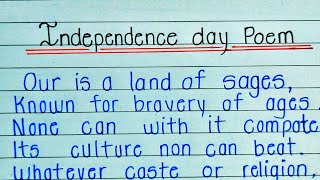 Independence day Poem
Our is a land of sages,
Known for bravery of ages.
None can with it compete
Its culture non can beat.
Whatever caste or religion,